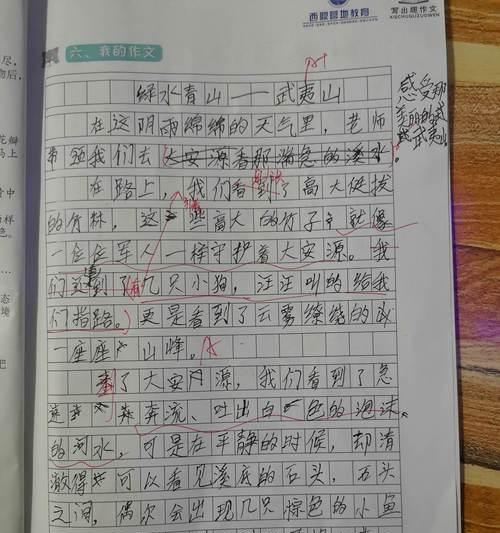 西鄂营地教育
写出理作文
XIECHUGUZUOWEN
六、我的作文
绿水青山——武夷山
在这阴雨绵绵的天气里，老师
带领我们去大安源看那湍急的溪水。
感受那
美丽的武
武夷山
在路上，我们看到了高大挺拔
的竹林，这些高大的竹子就像
一位位军人一样守护着大安源。我
们还遇到了几只小狗，汪汪叫的给我
们指路。更是看到了云雾缭绕的
一座座山峰。
到了大安源，我们看到了急
速奔流、吐出白色的泡沫
的河水，可是在平静的时候，却清
澈得可以看见溪底的石头，石头
之间，偶尔会出现几只棕色的小鱼